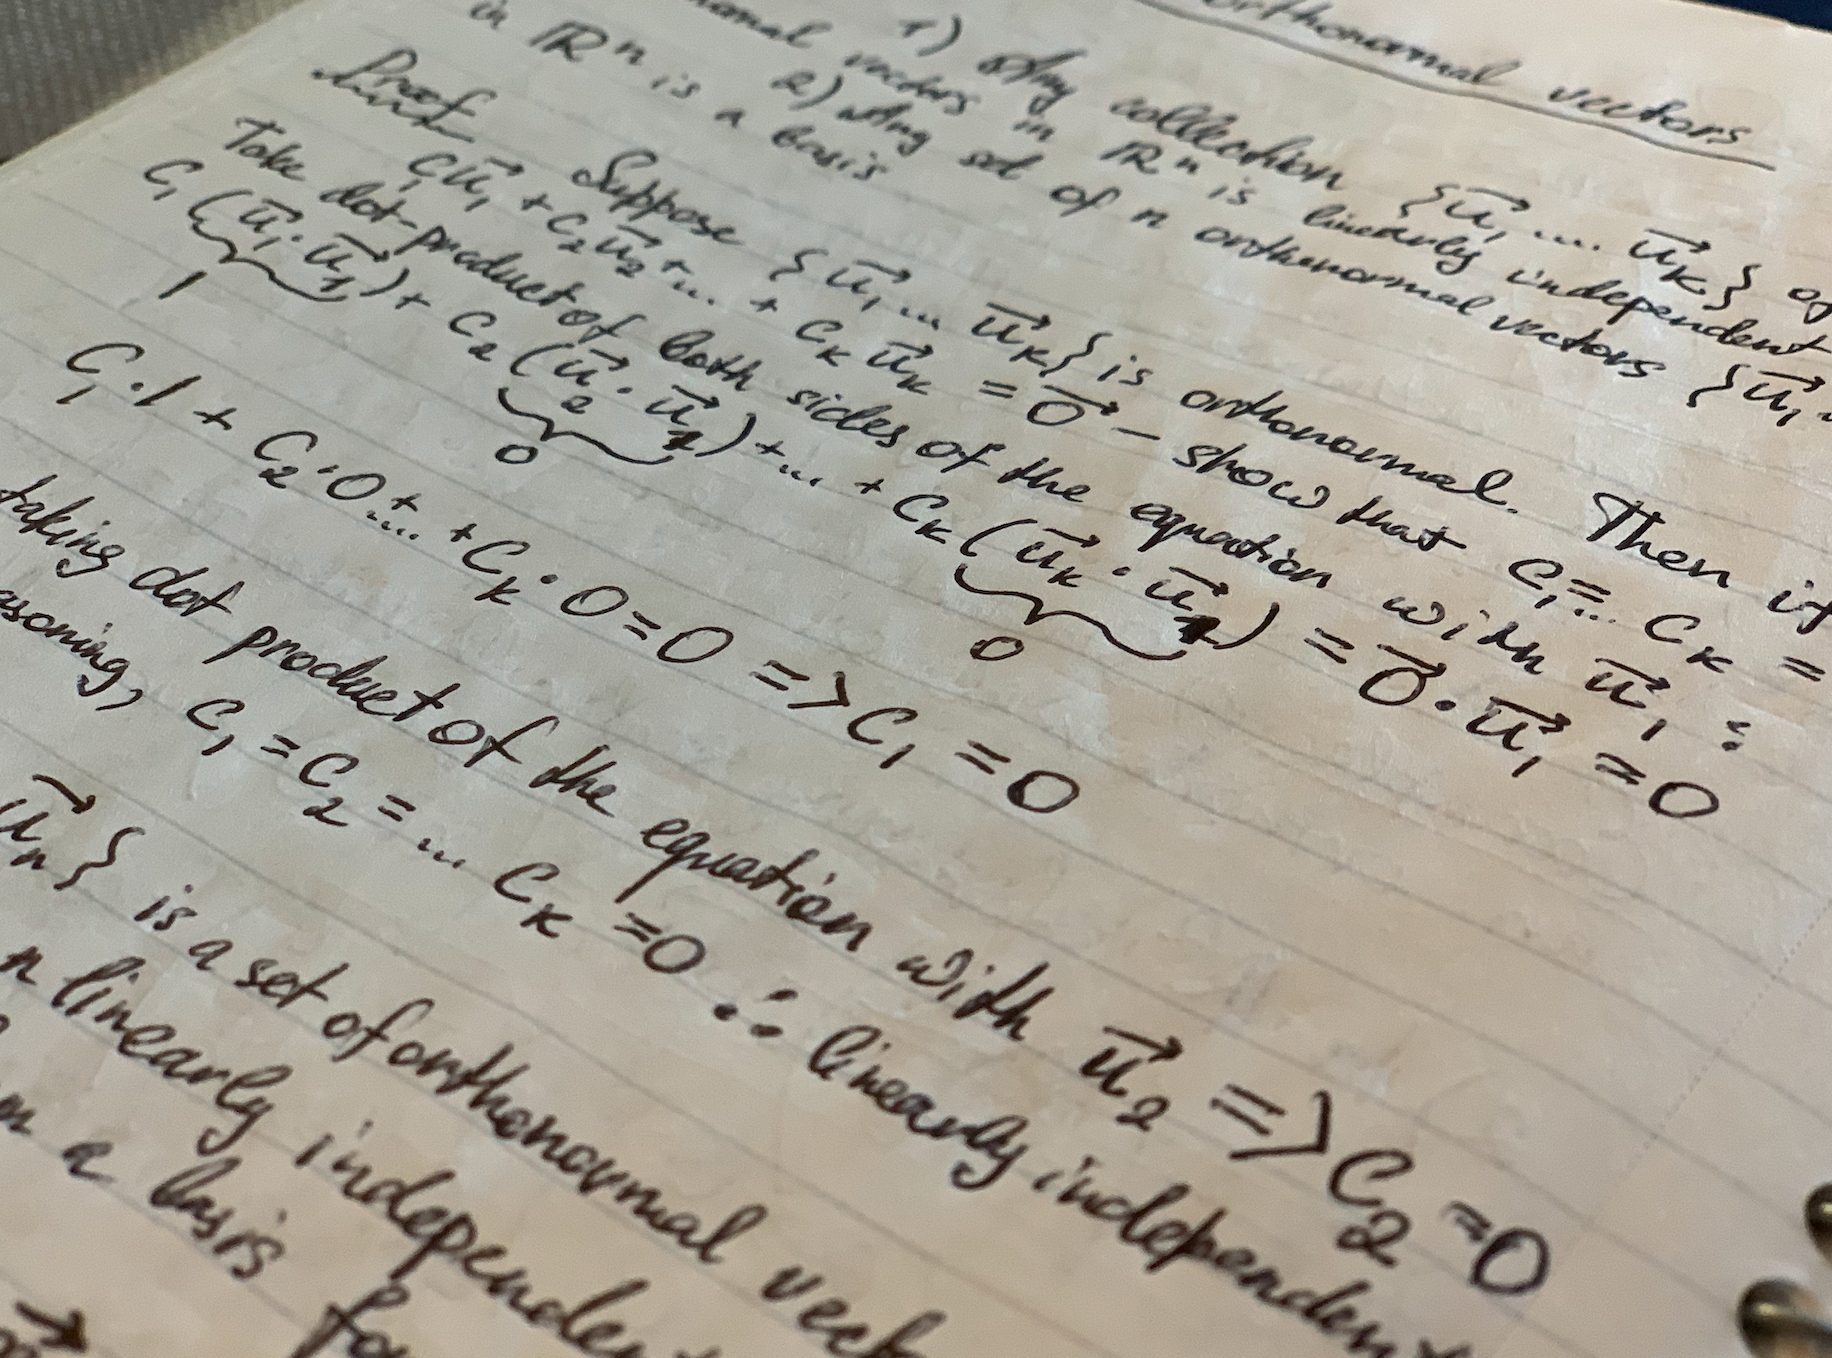 orthonormal vectors
1) Any collection {u⃗₁ ... u⃗ₖ} of
vectors in ℝⁿ is linearly independent
2) Any set of n orthonormal vectors {u⃗₁
in ℝⁿ is a basis
Proof Suppose {u⃗₁ ... u⃗ₖ} is orthonormal. Then if
c₁u⃗₁ + c₂u⃗₂ + ... + cₖu⃗ₖ = 0⃗ – show that c₁ = ... cₖ =
Take dot-product of both sides of the equation with u⃗₁ :
c₁(u⃗₁ · u⃗₁) + c₂(u⃗₂ · u⃗₁) + ... + cₖ(u⃗ₖ · u⃗₁) = 0⃗ · u⃗₁ = 0
1 0 0
c₁·1 + c₂·0 + ... + cₖ·0 = 0 => c₁ = 0
taking dot product of the equation with u⃗₂ => c₂ = 0
c₁ = c₂ = ... cₖ = 0 ∴ linearly independent
u⃗ₙ} is a set of orthonormal
n linearly independent
a basis